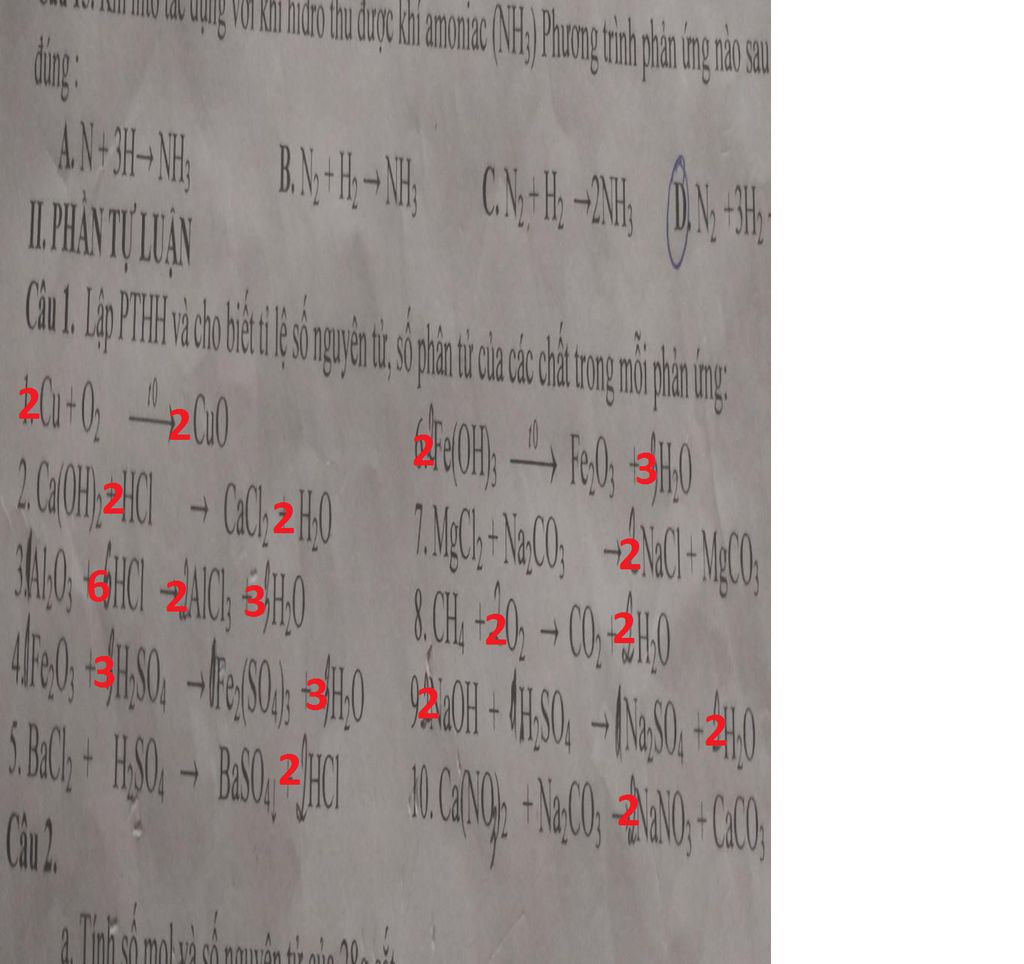 tác dụng với khí hidro thu được khí amoniac (NH3) Phương trình phản ứng nào sau
đúng :
A. N + 3H → NH3 B. N2 + H2 → NH3 C. N2 + H2 → 2NH3 D. N2 + 3H2
II. PHẦN TỰ LUẬN
Câu 1. Lập PTHH và cho biết tỉ lệ số nguyên tử, số phân tử của các chất trong mỗi phản ứng:
2Cu + O2 t0 → 2 CuO
2. Ca(OH)2 2HCl → CaCl2 2 H2O
3. Al2O3 6HCl → 2AlCl3 3H2O
4. 1Fe2O3 + 3H2SO4 → 1Fe2(SO4)3 3H2O
5. BaCl2 + H2SO4 → BaSO4 + 2HCl
2Fe(OH)3 t0 → Fe2O3 + 3H2O
7. MgCl2 + Na2CO3 → 2NaCl + MgCO3
8. CH4 + 2O2 → CO2 + 2H2O
9. 2NaOH + 1H2SO4 → 1Na2SO4 + 2H2O
10. Ca(NO3)2 + Na2CO3 → 2NaNO3 + CaCO3
Câu 2.
a. Tính số mol và số nguyên tử của 28g sắt